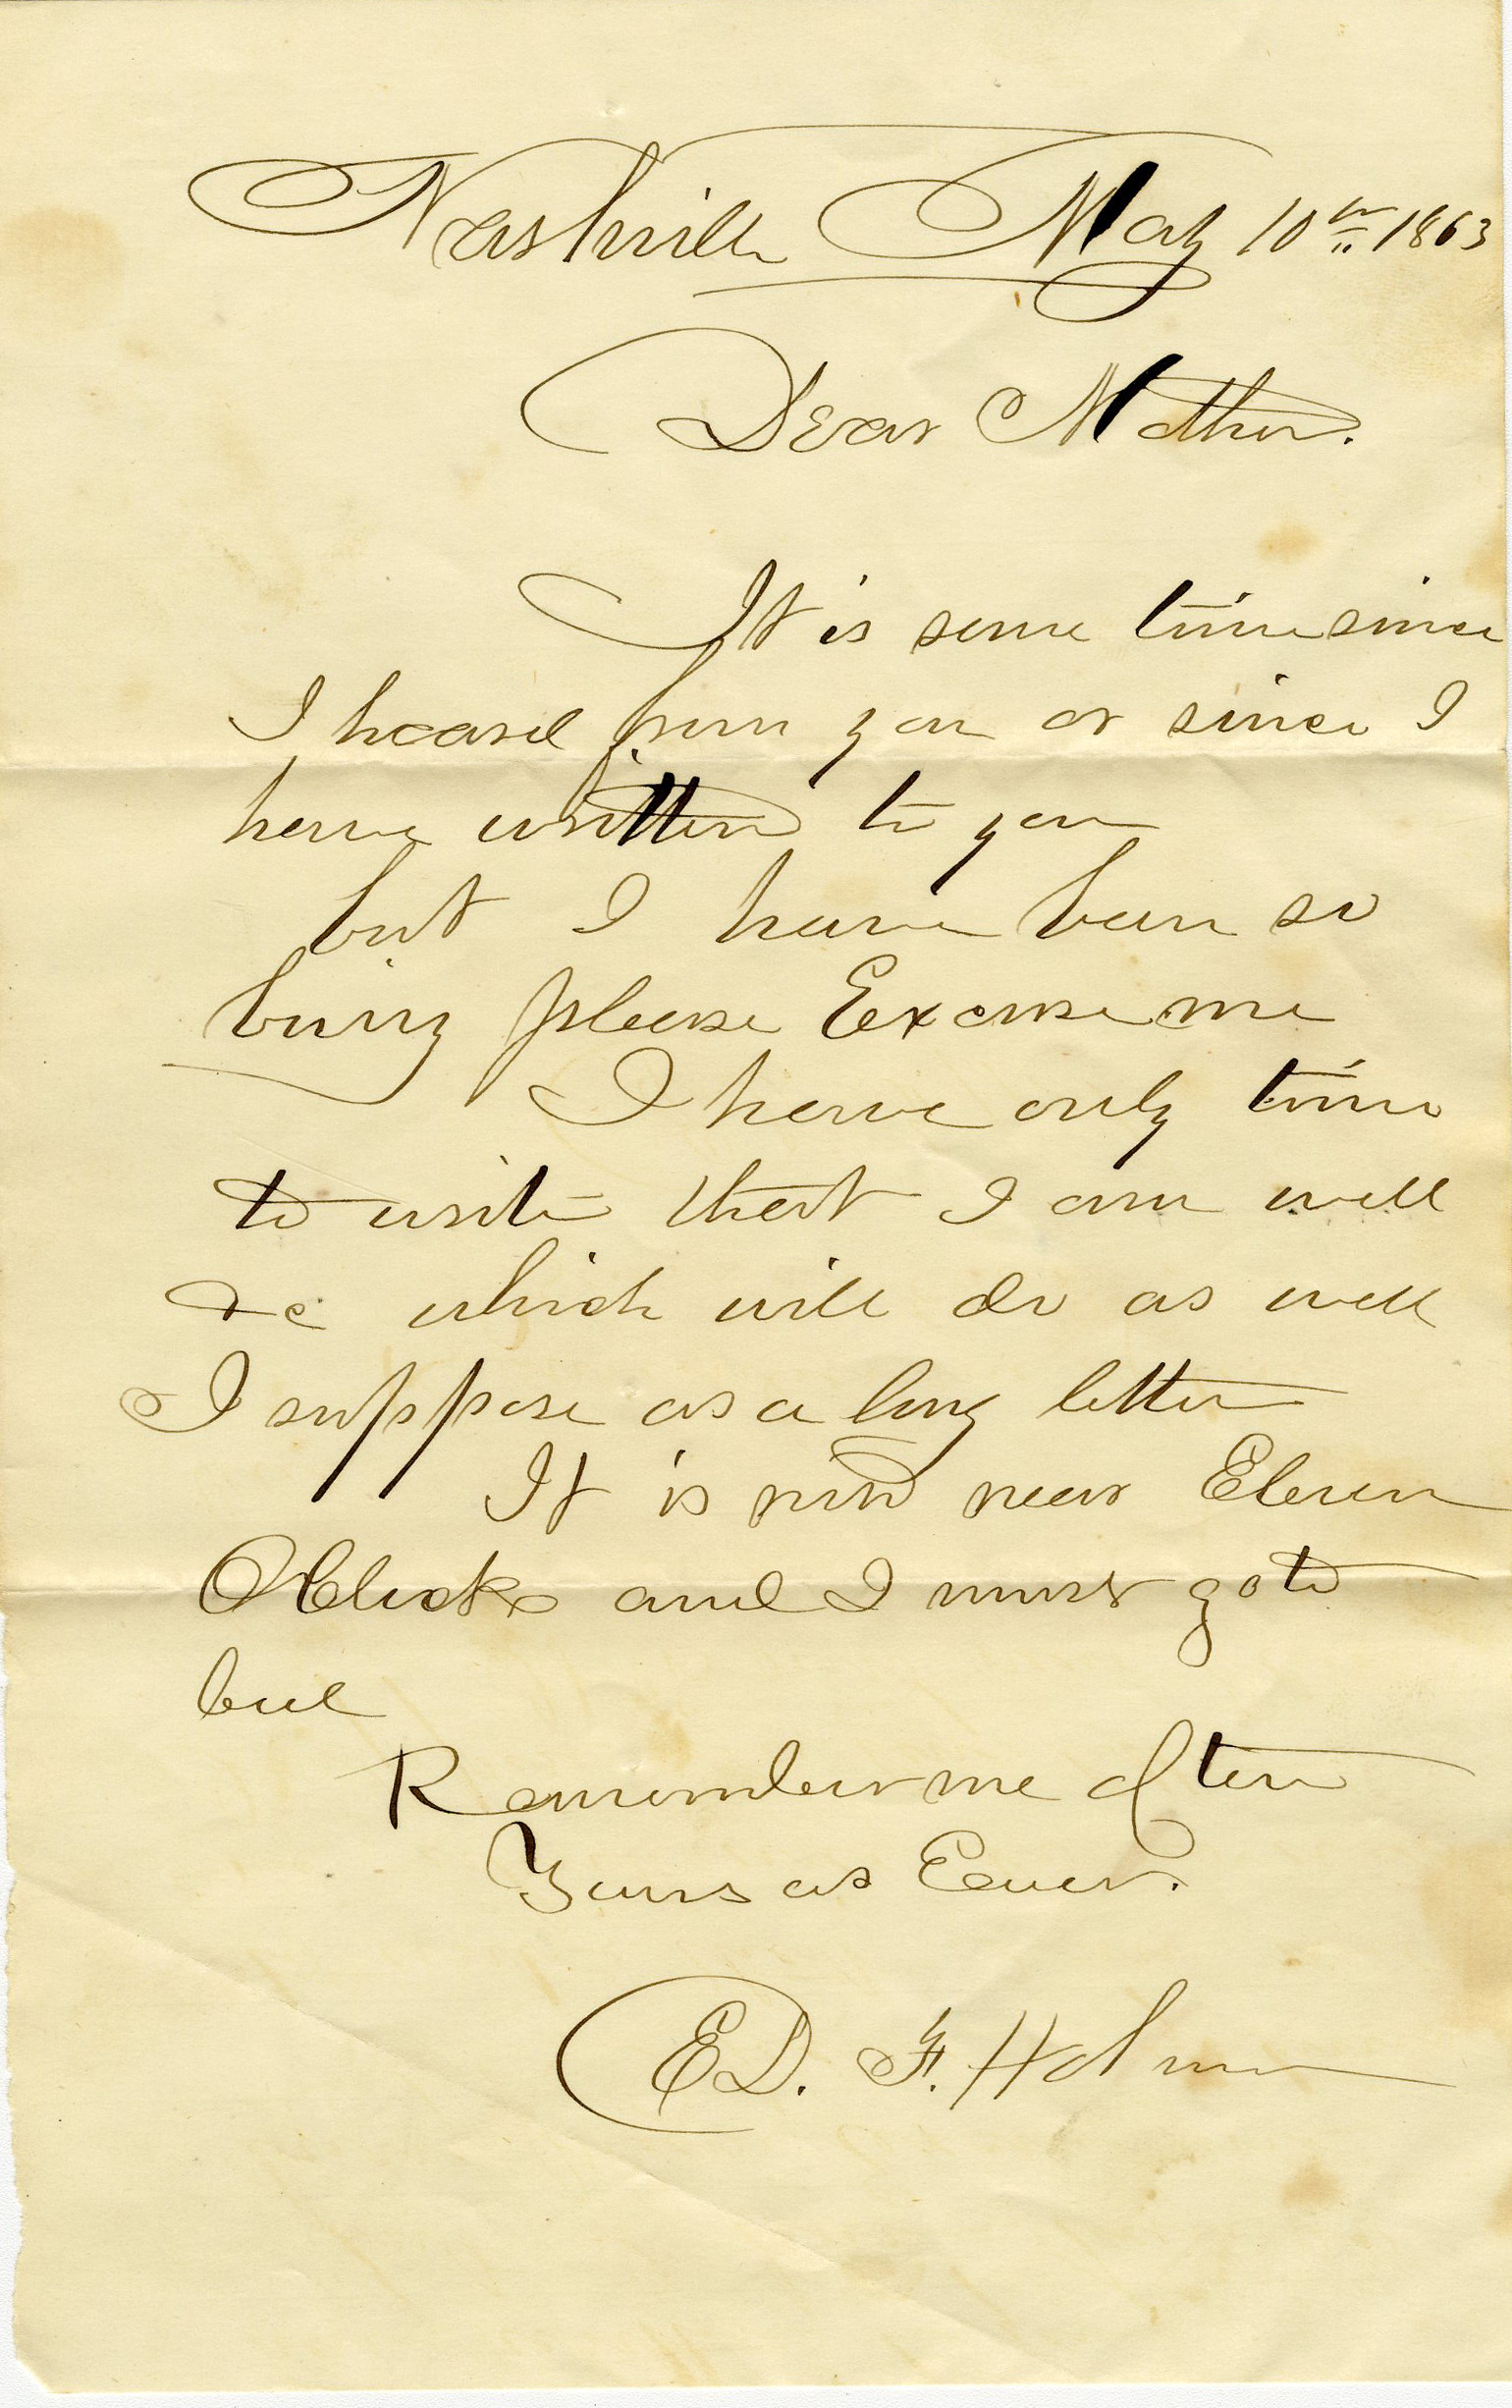 Nashville May 10th 1863
Dear Mother.
It is some time since
I heard from you or since I
have written to you
but I have been so
busy please Excuse me
I have only time
to write that I am well
&c which will do as well
I suppose as a long letter
It is now near Eleven
OClock and I must go to
bed
Remember me often
Yours as Ever.
ED. F. Holmes